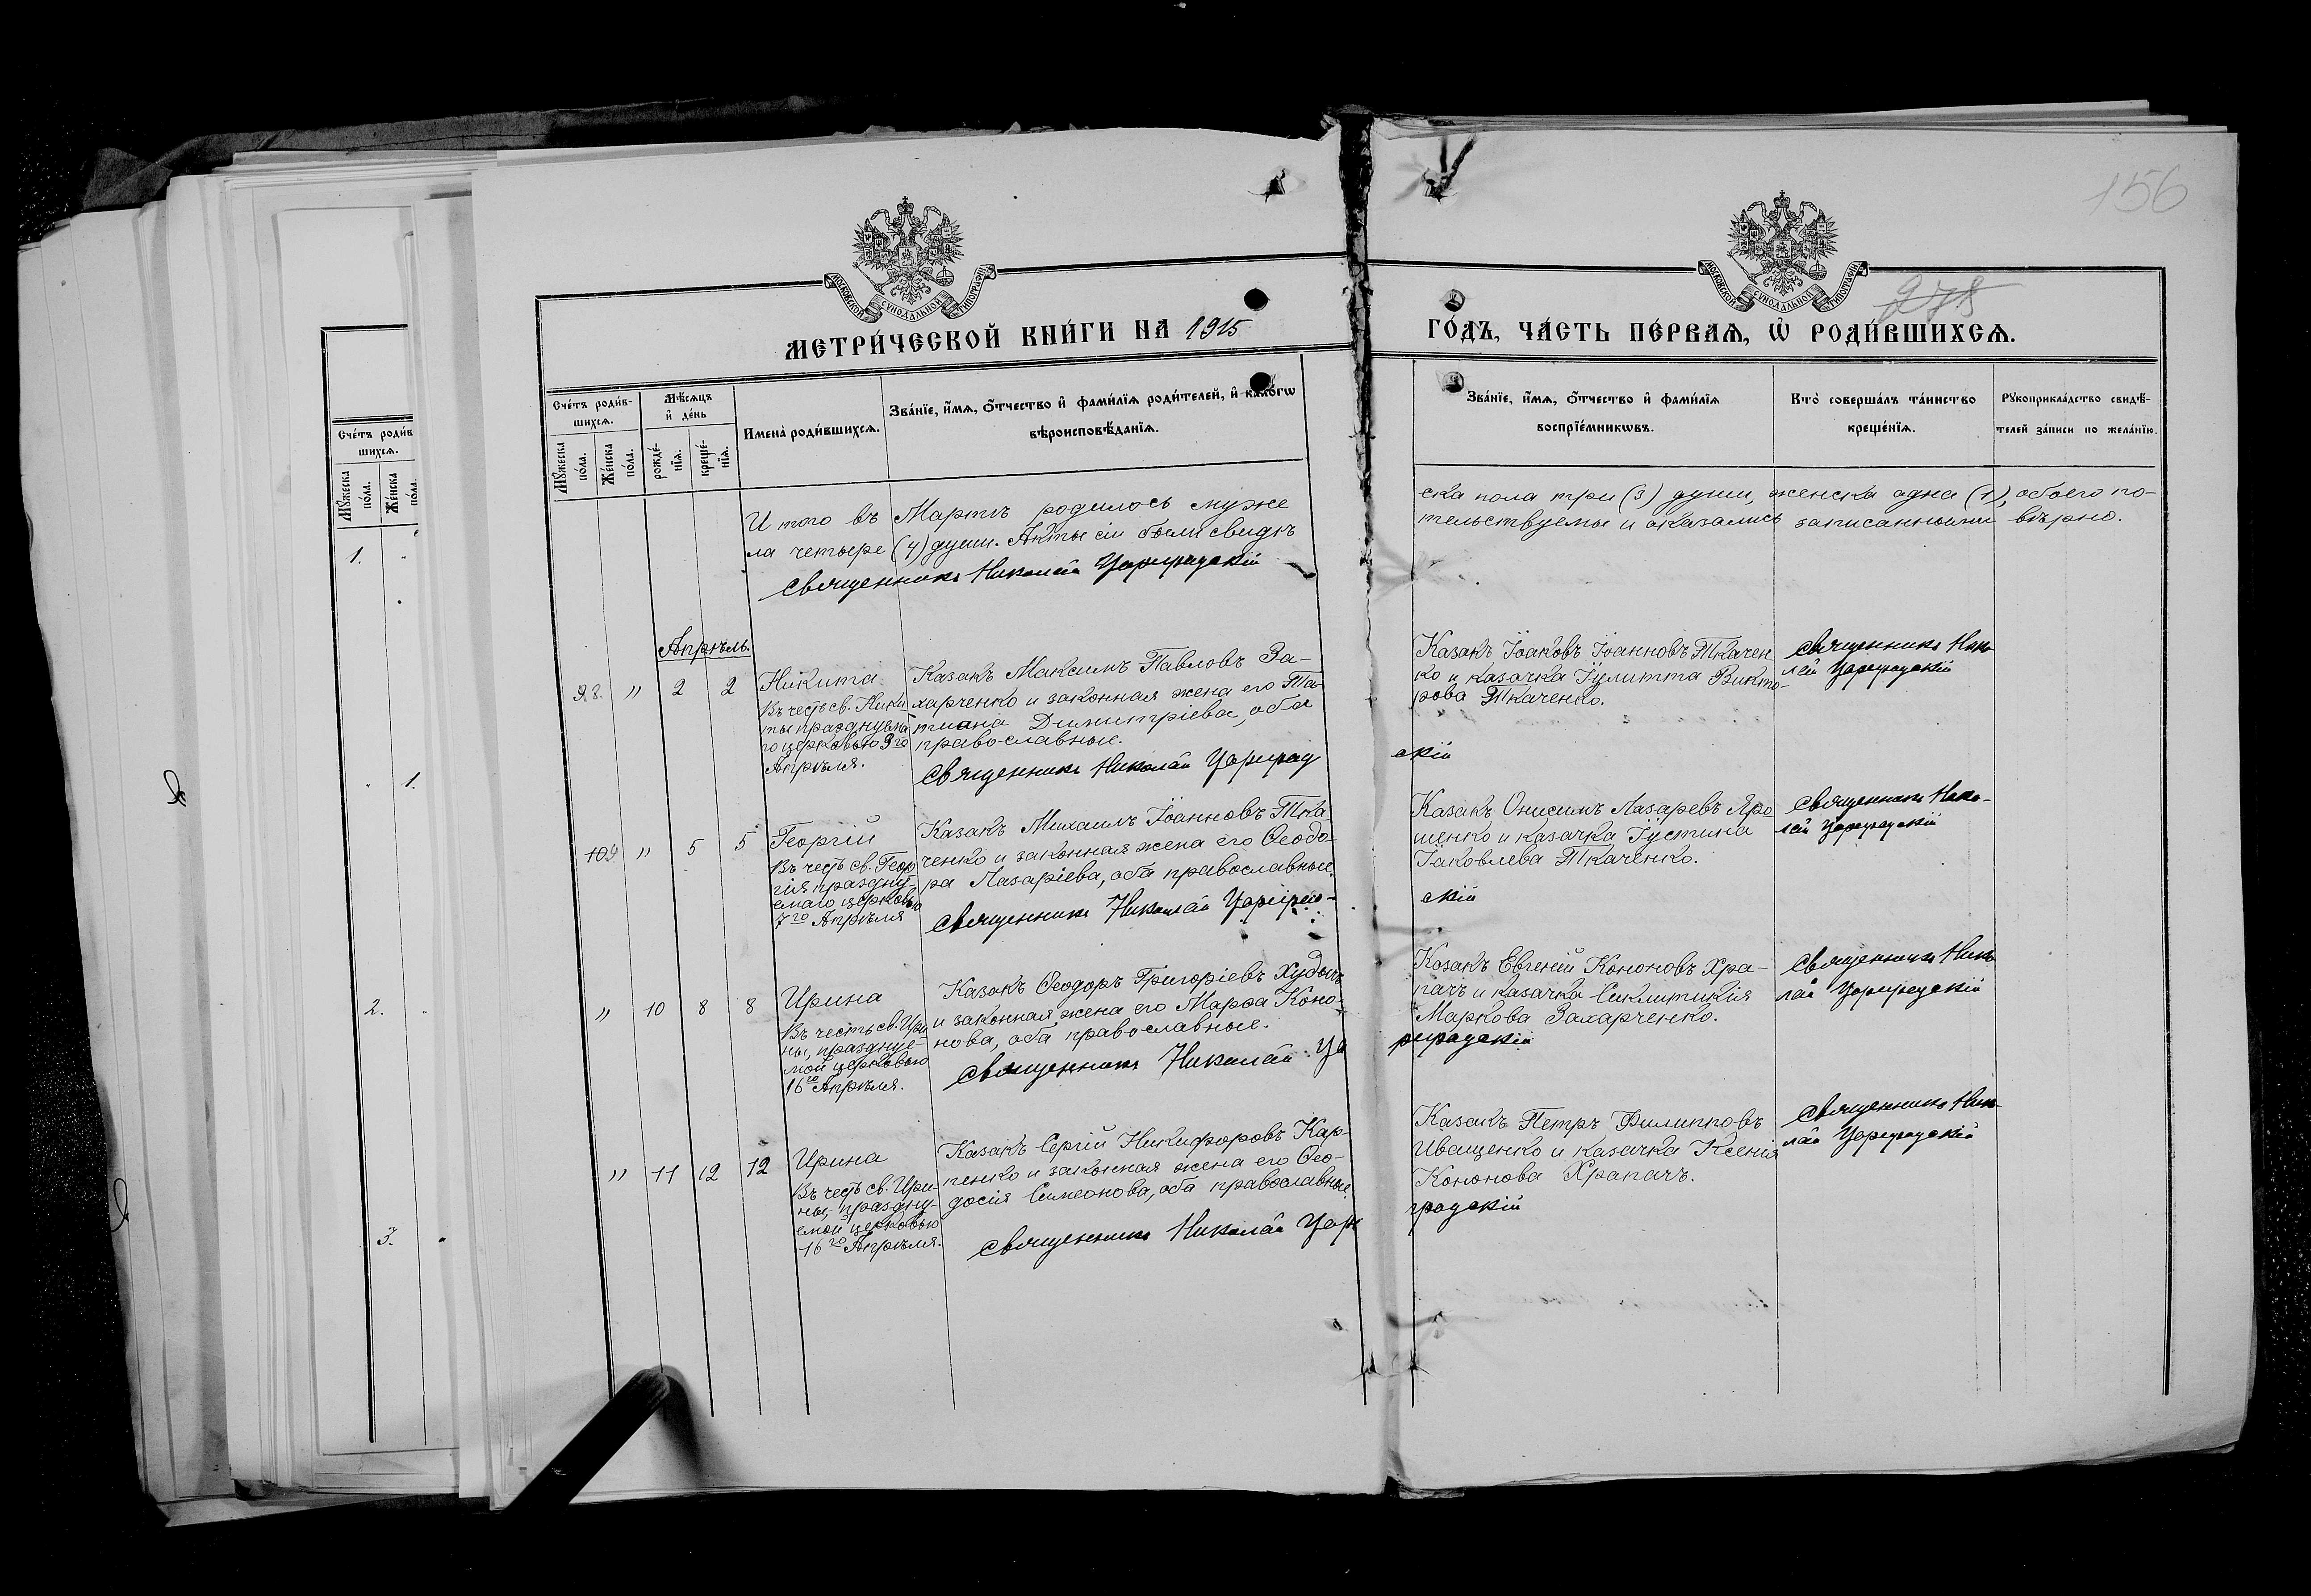 156
МОСКОВСКОЙ СѴНОДАЛЬНОЙ ТИПОГРАФІИ
МОСКОВСКОЙ СѴНОДАЛЬНОЙ ТИПОГРАФІИ
МЕТРИ́ЧЕСКОЙ КНИ́ГИ НА 1915
ГО́ДЪ, ЧА́СТЬ ПЕ́РВАѦ, Ѡ҆ РОДИ́ВШИХСѦ.
Сче́тъ роди́в
шихсѧ.
Мꙋ́жеска
по́ла.
Же́нска
по́ла.
1.
1.
2.
3.
Сче́тъ роди́в-
шихсѧ.
Мꙋ́жеска
по́ла.
Же́нска
по́ла.
Мѣ́сѧцъ
и҆ де́нь
рожде́-
нїѧ.
креще́-
нїѧ.
Имена̀ роди́вшихсѧ.
Зва́нїе, и҆́мѧ, ѻ҆́тчество и҆ фами́лїѧ роди́телей, и҆ како́гѡ
вѣроисповѣ́данїѧ.
Зва́нїе, и҆́мѧ, ѻ҆́тчество и҆ фами́лїѧ
воспрїе́мникѡвъ.
Кто̀ соверша́лъ та́инство
креще́нїѧ.
Рꙋкоприкла́дство свидѣ́-
телей за́писи по жела́нїю.
И того въ Мартѣ родилось муже
ска пола три (3) души, женска одна (1), обоего по-
ла четыре (4) души. Акты сіи были свидѣ
тельствуемы и оказались записанными вѣрно.
Священникъ Николай Цареградскій
Апрѣль.
" 2 2
Никита
Въ честь св. Ники
ты празднуема
го церковью 3го
Апрѣля.
Казакъ Максимъ Павловъ За-
харченко и законная жена его Та-
тиана Димитріева, оба
православные.
Священникъ Николай Цареград
скій
Казакъ Іоаковъ Іоанновъ Ткачен
ко и казачка Іулитта Викто-
рова Ткаченко.
Священникъ Нико
лай Цареградскій
" 5 5
Георгій
Въ честь св. Геор
гія праздну-
емаго церковью
7го Апрѣля
Казакъ Михаилъ Іоанновъ Тка
ченко и законная жена его Ѳеодо-
ра Лазаріева, оба православные.
Священникъ Николай Цареград-
скій
Казакъ Онисимъ Лазаревъ Яро
шенко и казачка Іустина
Іаковлева Ткаченко.
Священникъ Нико-
лай Цареградскій
" 10 8 8
Ирина
Въ честь св. Ири
ны, праздnуе-
мой церковью
16го Апрѣля.
Казакъ Ѳеодоръ Григоріевъ
и законная жена его Марѳа Коно-
нова, оба православные.
Священникъ Николай Ца
реградскій
Казакъ Евгеній Кононовъ Хра-
пачъ и казачка Сиклитикія
Маркова Захарченко.
Священникъ Нико
лай Цареградскій
" 11 12 12
Ирина
Въ честь св. Ири
ны, праздну-
емой церковью
16го Апрѣля.
Казакъ Сергій Никифоровъ Кар-
пенко и законная жена его Ѳео-
досія Симеонова, оба православные
Священникъ Николай Царе
градскій
Казакъ Петръ Филипповъ
Иващенко и казачка Ксенія
Кононова Храпачъ.
Священникъ Нико
лай Цареградскій